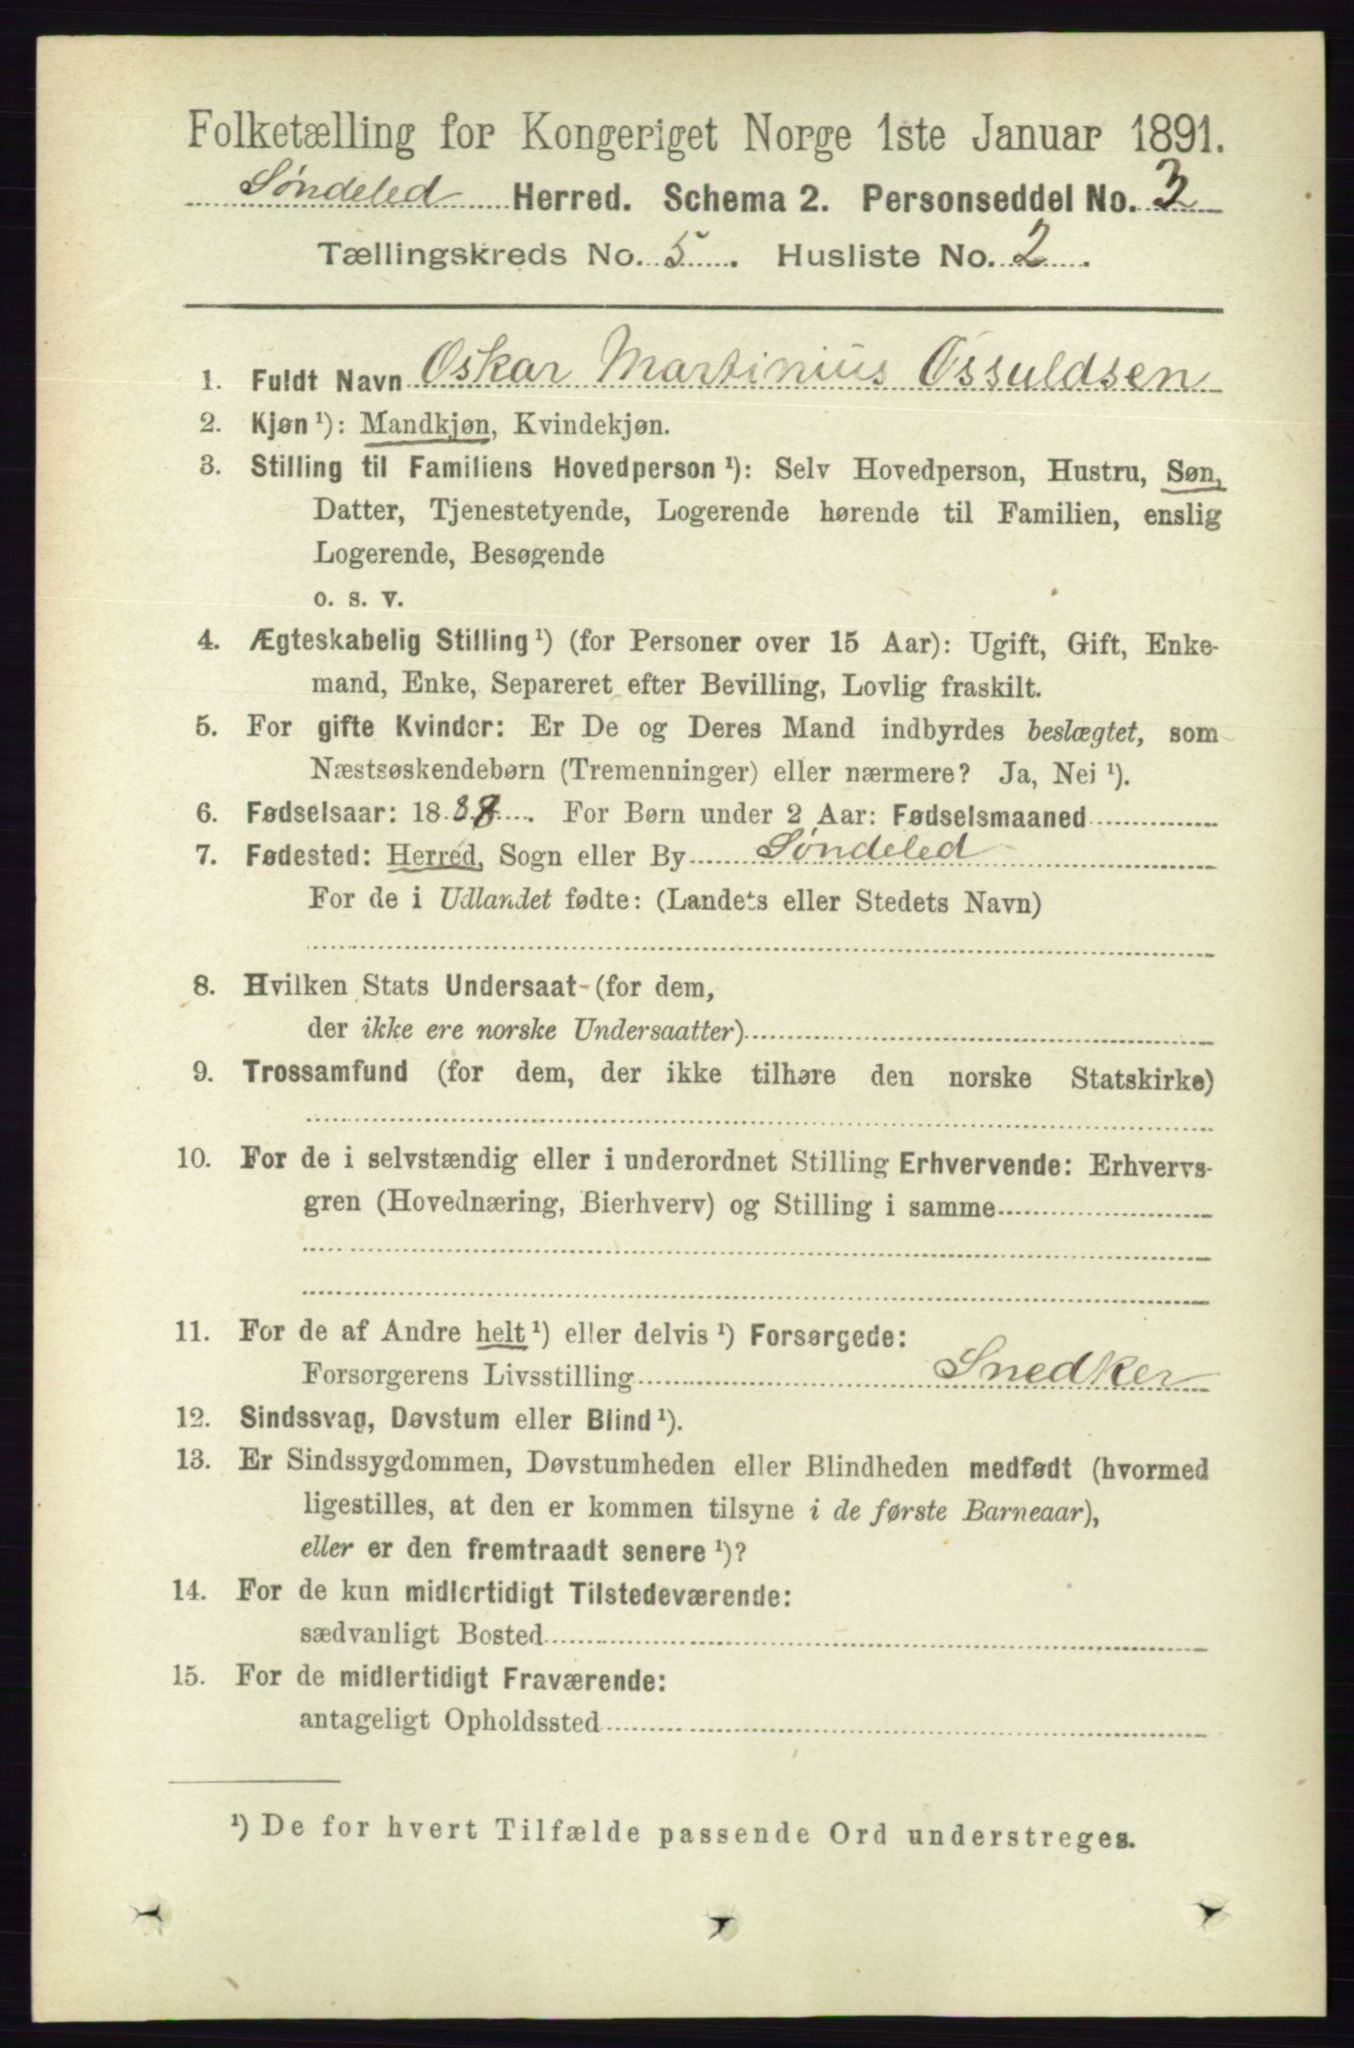 Folketælling for Kongeriget Norge 1ste Januar 1891.
Søndeled Herred. Schema 2. Personseddel No. 3
Tællingskreds No. 5. Husliste No. 2.
1. Fuldt Navn Oskar Martinius Ossuldsen
2. Kjøn ¹): Mandkjøn, Kvindekjøn.
3. Stilling til Familiens Hovedperson ¹): Selv Hovedperson, Hustru, Søn,
Datter, Tjenestetyende, Logerende hørende til Familien, enslig
Logerende, Besøgende
o. s. v.
4. Ægteskabelig Stilling ¹) (for Personer over 15 Aar): Ugift, Gift, Enke-
mand, Enke, Separeret efter Bevilling, Lovlig fraskilt.
5. For gifte Kvinder: Er De og Deres Mand indbyrdes beslægtet, som
Næstsøskendebørn (Tremenninger) eller nærmere? Ja, Nei ¹).
6. Fødselsaar: 1888. For Børn under 2 Aar: Fødselsmaaned
7. Fødested: Herred, Sogn eller By Søndeled
For de i Udlandet fødte: (Landets eller Stedets Navn)
8. Hvilken Stats Undersaat (for dem,
der ikke ere norske Undersaatter)
9. Trossamfund (for dem, der ikke tilhøre den norske Statskirke)
10. For de i selvstændig eller i underordnet Stilling Erhvervende: Erhvervs-
gren (Hovednæring, Bierhverv) og Stilling i samme
11. For de af Andre helt ¹) eller delvis ¹) Forsørgede:
Forsørgerens Livsstilling Snedker
12. Sindssvag, Døvstum eller Blind ¹).
13. Er Sindssygdommen, Døvstumheden eller Blindheden medfødt (hvormed
ligestilles, at den er kommen tilsyne i de første Barneaar),
eller er den fremtraadt senere ¹)?
14. For de kun midlertidigt Tilstedeværende:
sædvanligt Bosted
15. For de midlertidigt Fraværende:
antageligt Opholdssted
¹) De for hvert Tilfælde passende Ord understreges.